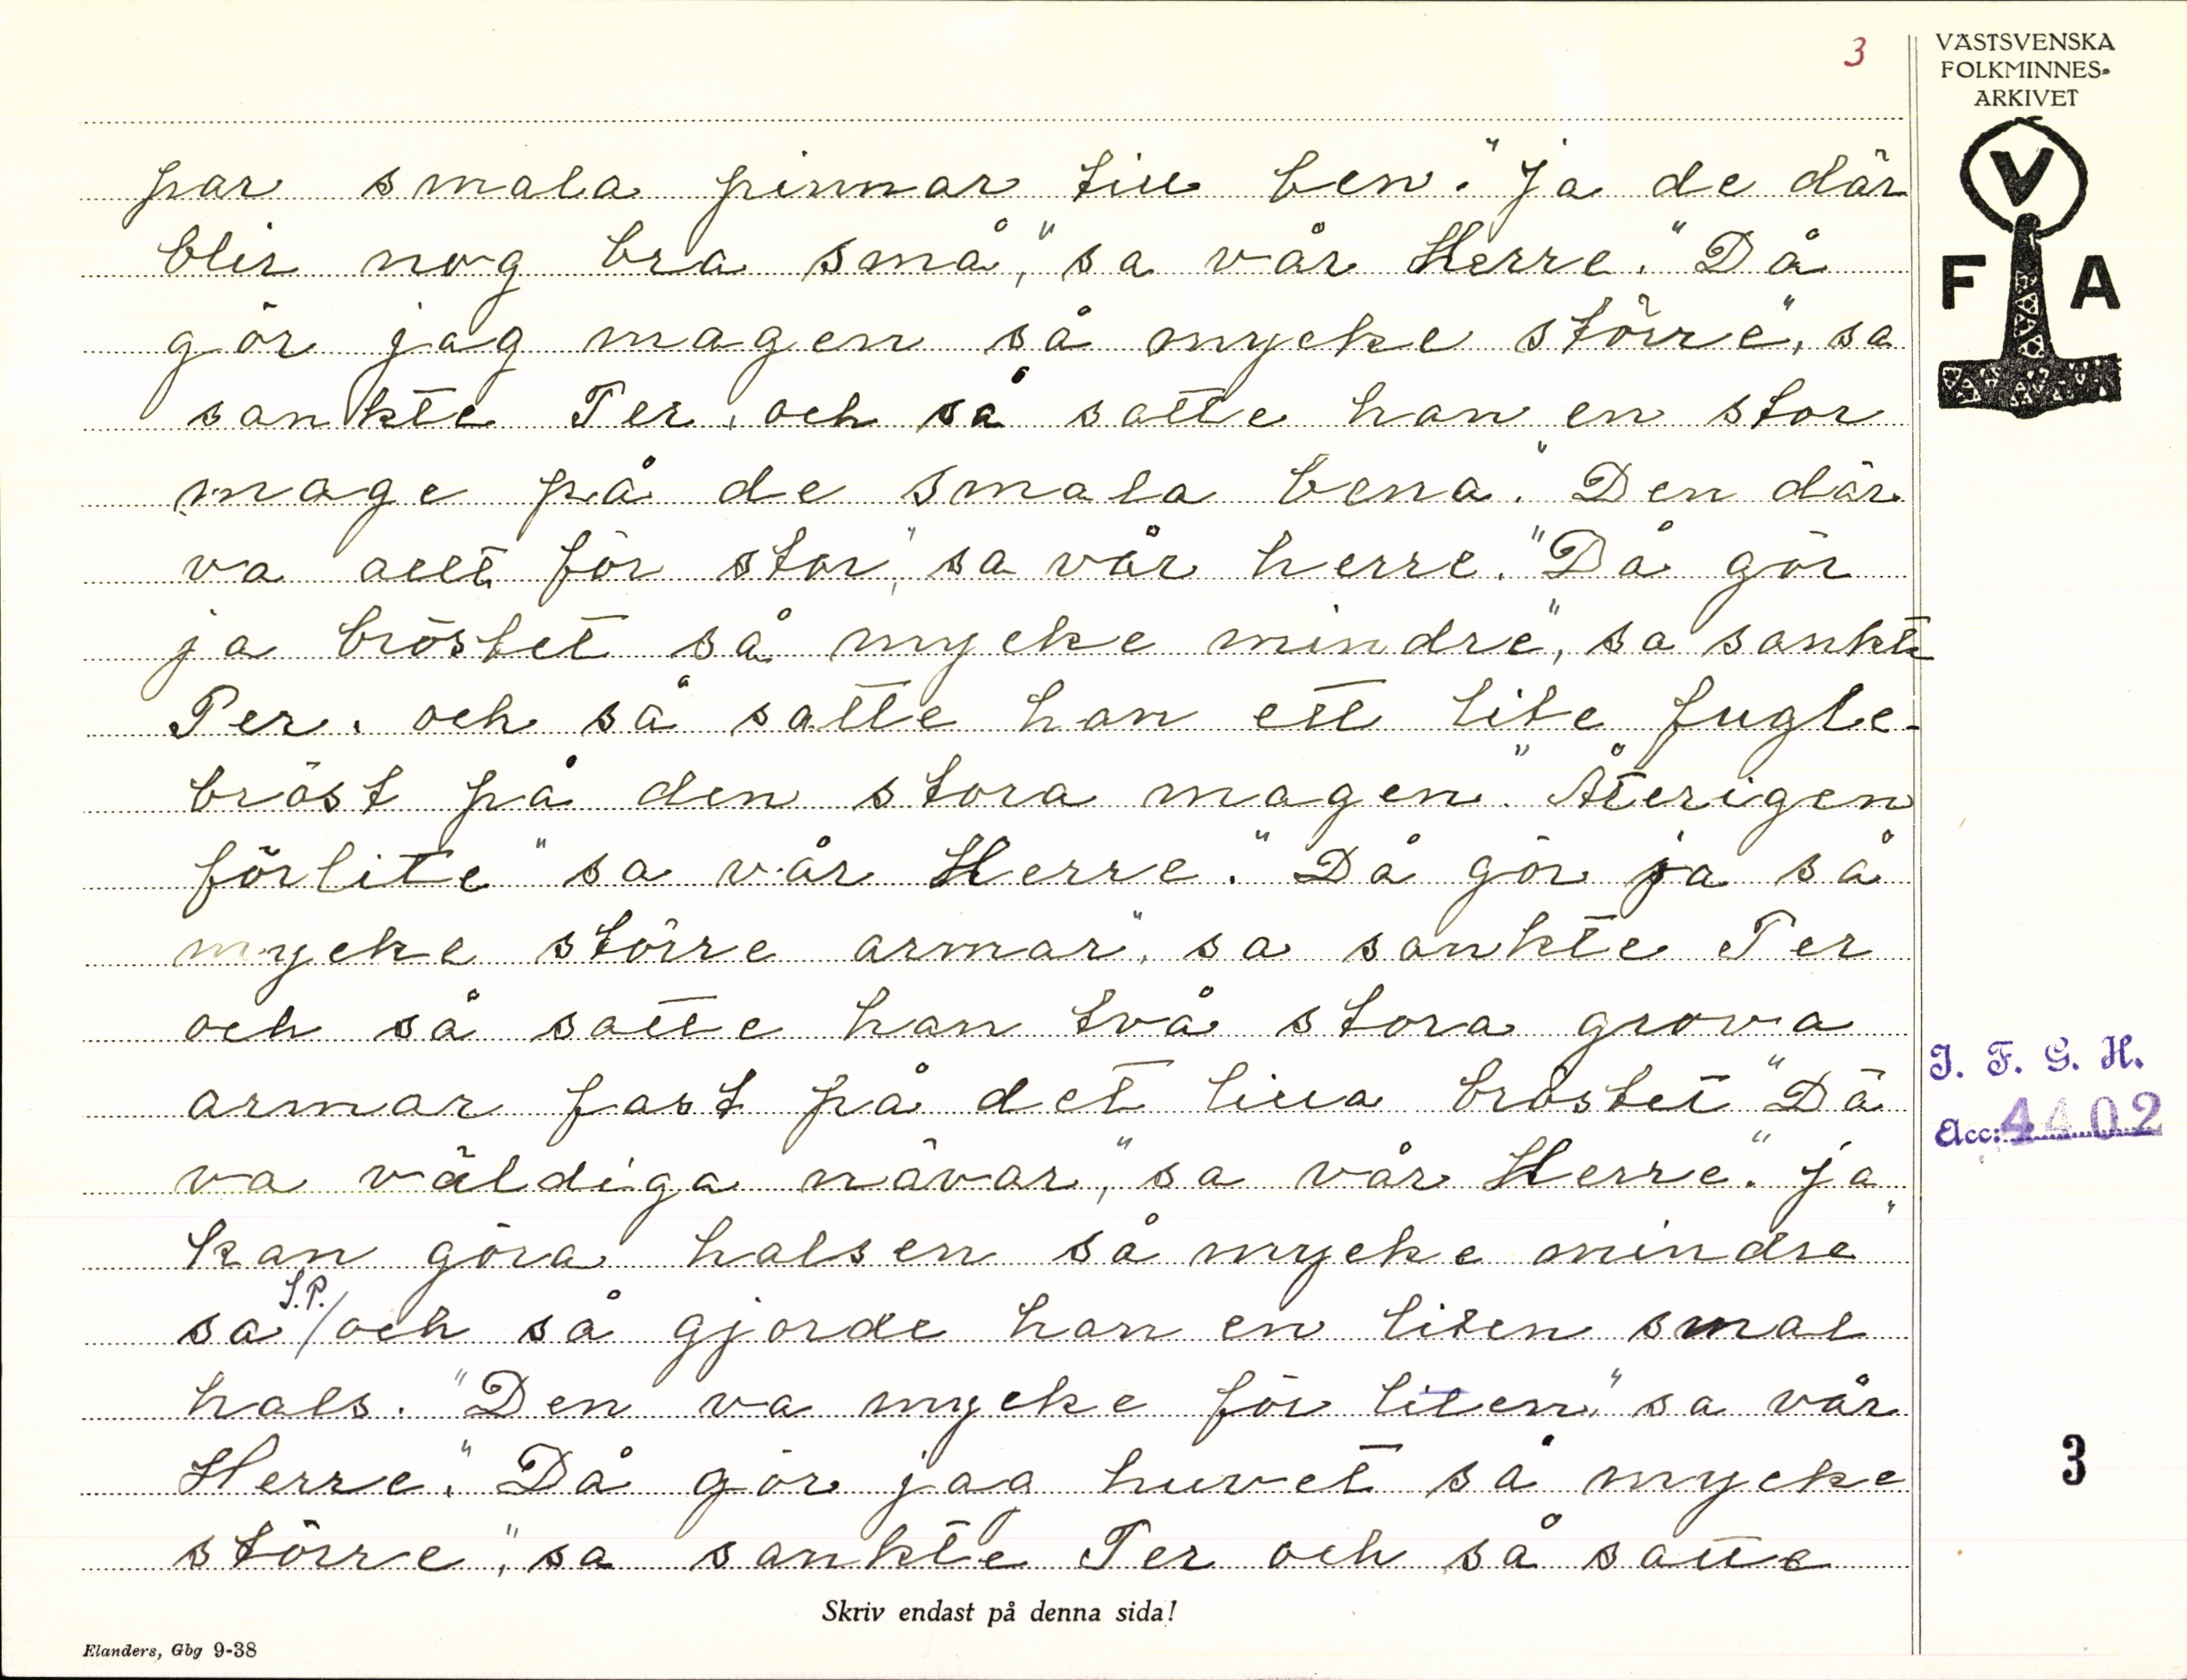 3
VÄSTSVENSKA
FOLKMINNES-
ARKIVET
V
F A
par smala pinnar till ben. "Ja de där
blir nog bra små," sa vår Herre. "Då
gör jag magen så mycke större", sa
sankte Per, och så satte han en stor
mage på de smala bena. "Den där
va allt för stor," sa vår herre. "Då gör
ja bröstet så mycke mindre", sa sankte
Per. och så satte han ett lite fugle-
bröst på den stora magen. "Återigen
förlite" sa vår Herre. "Då gör ja så
mycke större armar", sa sankte Per
och så satte han två stora grova
armar fast på det lilla bröstet "Dä
va väldiga nävar," sa vår Herre. "Ja
kan göra halsen så mycke mindre"
sa S.P./ och så gjorde han en liten smal
hals. "Den va mycke för liten," sa vår
Herre. "Då gör jag huvet så mycke
större," sa sankte Per och så satte
I. F. G. H.
Acc: 4402
3
Skriv endast på denna sida!
Elanders, Gbg 9-38